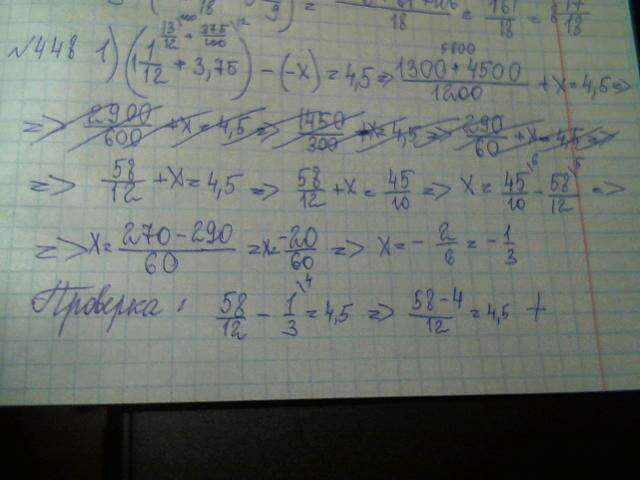 18 9 ) = 18 = 161/18 = 8 17/18
№448 1) (1 1/12 + 3,75) - (-x) = 4,5 => (1300 + 4500)/1200 + x = 4,5 =>
13/12 + 375/100 5800
=> 2900/600 + x = 4,5 => 1450/300 + x = 4,5 => 290/60 + x = 4,5 =>
=> 58/12 + x = 4,5 => 58/12 + x = 45/10 => x = 45/10 - 58/12 =>
=> x = (270 - 290)/60 = x = -20/60 => x = - 2/6 = - 1/3
Проверка: 58/12 - 1/3 = 4,5 => (58 - 4)/12 = 4,5 +